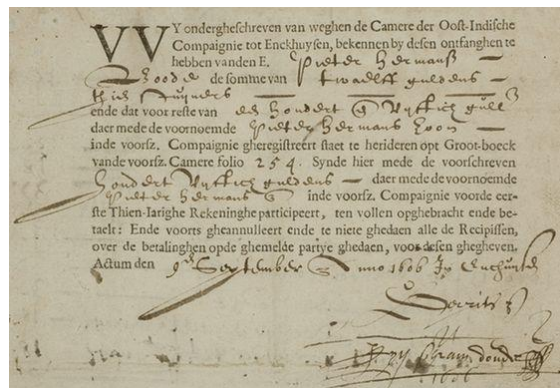 VVY ondergheschreven van weghen de Camere der Oost-Indische
Compaignie tot Enckhuysen, bekennen by desen ontfanghen te
hebben vanden E. Pieter Hermansz
Boode de somme van twaelff guldens
thien stuyvers
ende dat voor reste van een hondert @ vyftich gull
daer mede de voornoemde Pieter Hermans zoon
inde voorsz. Compaignie gheregistreert staet te herideren opt Groot-boeck
vande voorsz. Camere folio 254. Synde hier mede de voorschreven
hondert vyftich guldens daer mede de voornoemde
Pieter Hermans inde voorsz. Compaignie voorde eer-
ste Thien-Iarighe Rekeninghe participeert, ten vollen opghebracht ende be-
taelt: Ende voorts gheannulleert ende te niete ghedaen alle de Recipissen,
over de betalinghen opde ghemelde partye ghedaen, voor desen ghegheven.
Actum den 9 September Anno 1606 In Enchuysen
1606